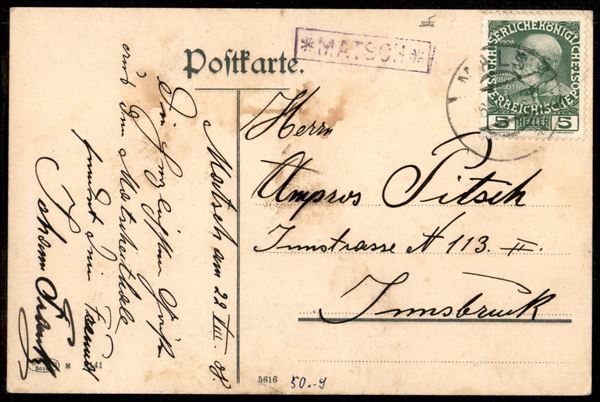 *MATSCH*
Postkarte.
MALS
KAISERLICHE KÖNIGLICHE
ÖSTERREICHISCHE
5 HELLER 5
Herrn
Ampros Pitsch
Innstrasse N 113. II.
Innsbruck
Matsch am 22 VIII 08.
Ein herzlichen Gruß
aus dem Matscherthale
sendet dein Freund
Johann
M 41
5616
50.-9